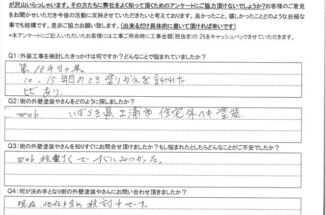 が沢山いらっしゃいます。その方たちに弊社をよく知って頂くためのアンケートにご協力頂けないでしょうか?お客様のご意見
をお聞かせいただき今後の活動に反映させていただきたいと考えております。良かったこと、嬉しかったことどのような些細な
事でも結構です。是非ご協力お願い致します。(出来るだけ具体的に書いて頂ければ幸いです)
*本アンケートにご記入いただいたお客様には工事ご用命時に工事金額(税抜き)の2%をキャッシュバックさせていただきます。
Q1:外装工事を検討したきっかけは何ですか?どんなことで悩まれていましたか?
10、15年目のとき塗りかえを
ヒビあり。
Q2:街の外壁塗装やさんをどのように探しましたか?
web いばらき県土浦市 住宅 外ヘキ 塗装
Q3:街の外壁塗装やさんを知りすぐにお問合せ頂けましたか?もし悩まれたとしたらどんなことがご不安でしたか?
web 検索して すぐにみつかった。
Q4:何が決め手となり街の外壁塗装やさんにお問い合わせ頂きましたか?
現在 他社も含め 検討中です。